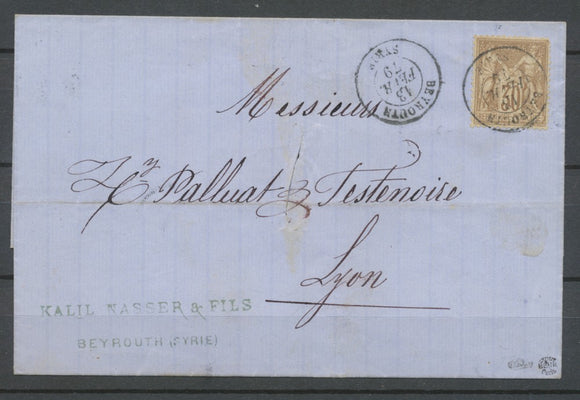 BEYROUTH
13
FEVR.
79
SYRIE
BEYROUTH
30
Messieurs
Hy Palluat & Testenoire
Lyon
KALIL NASSER & FILS
BEYROUTH (SYRIE)